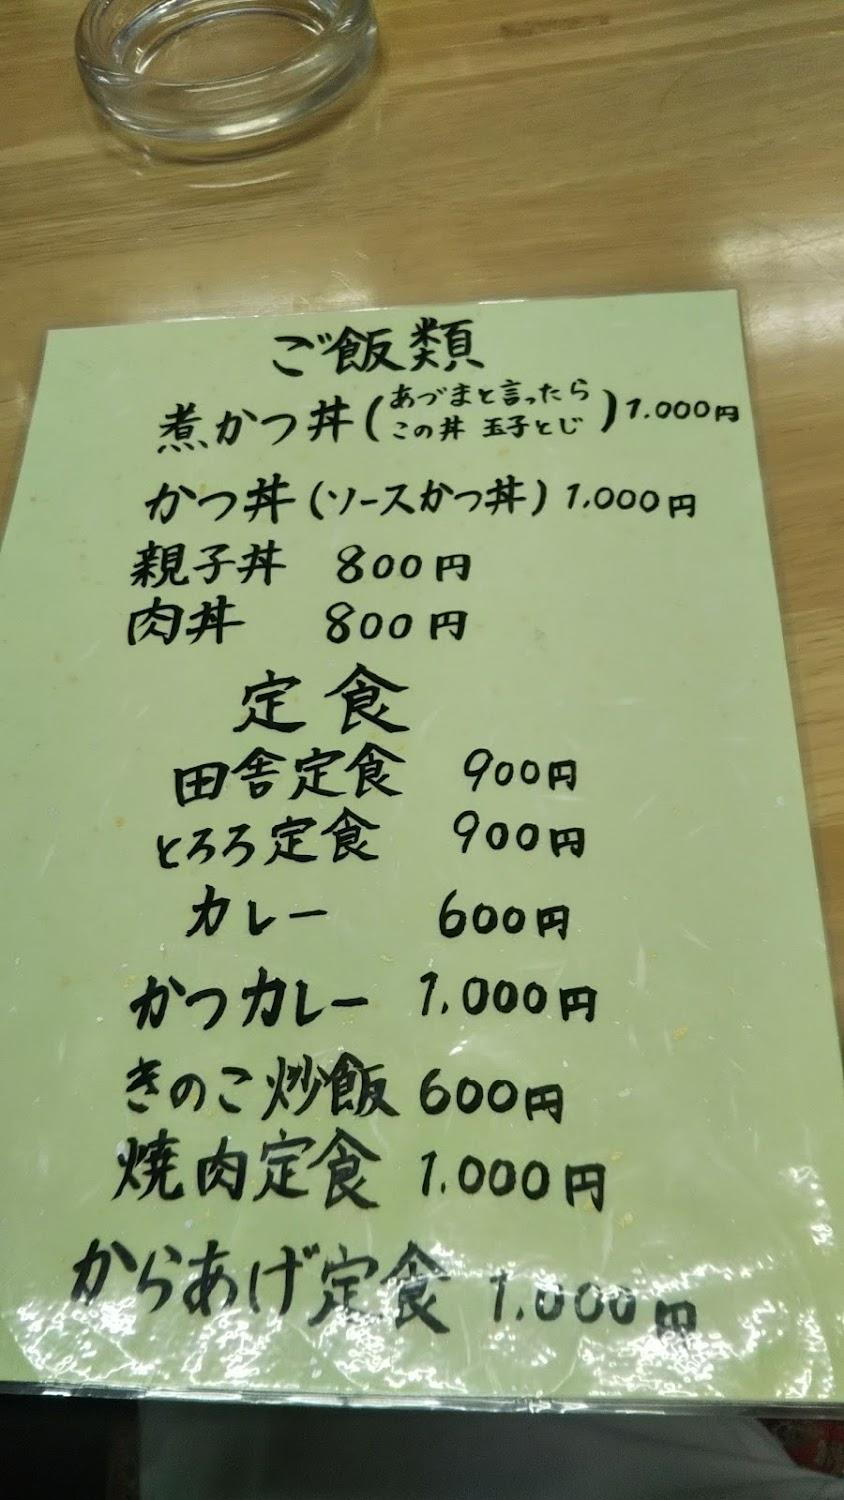 ご飯類
煮かつ丼(あづまと言ったら
この丼 玉子とじ)1.000円
かつ丼(ソースかつ丼)1.000円
親子丼 800円
肉丼 800円
定食
田舎定食 900円
とろろ定食 900円
カレー 600円
かつカレー 1.000円
きのこ炒飯 600円
焼肉定食 1.000円
からあげ定食 1.000円